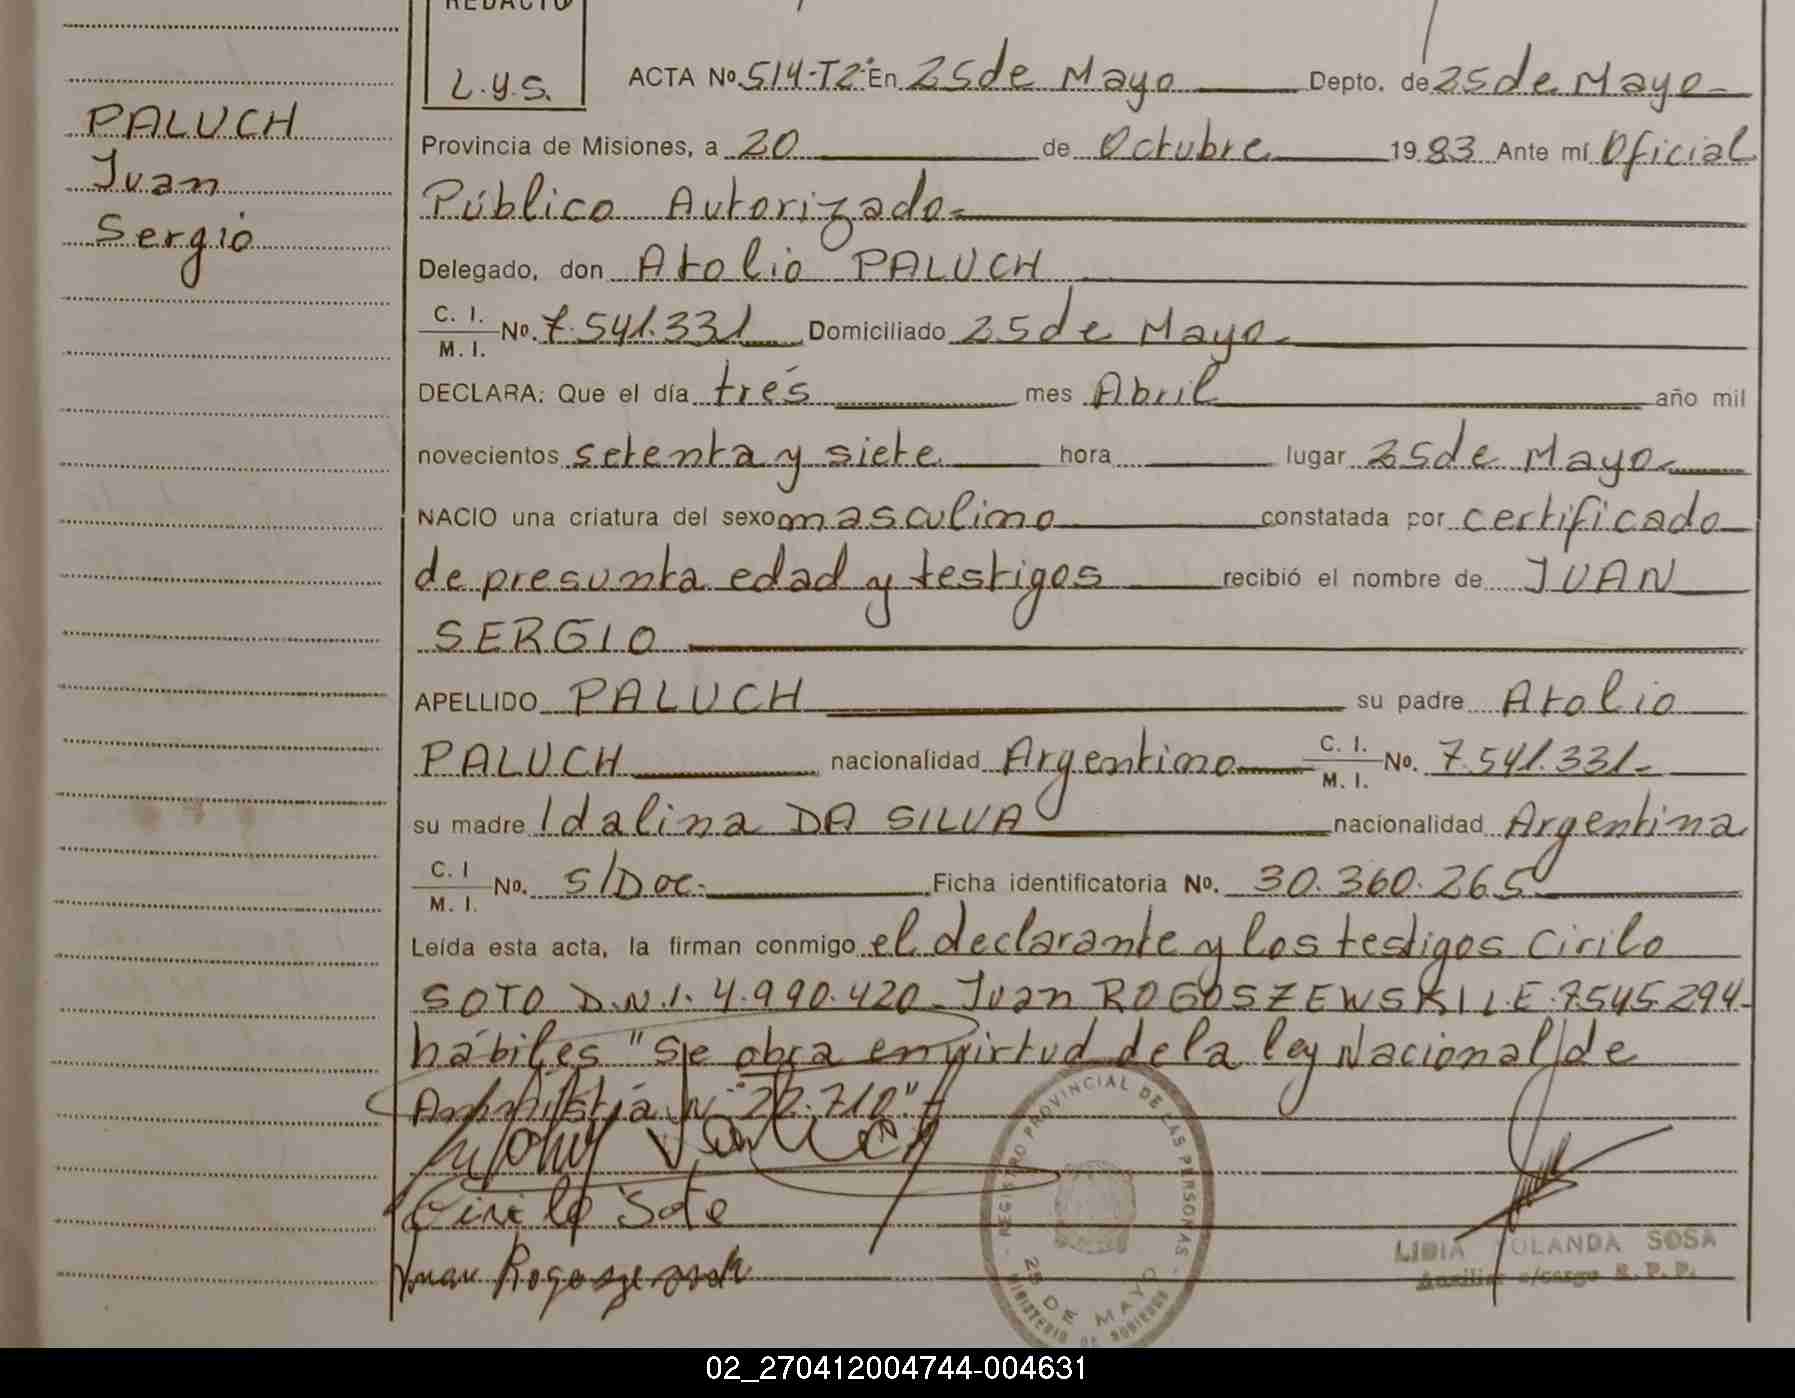 REDACTO
L.Y.S.
PALUCH
Juan
Sergio
ACTA No. 514-T2º En 25 de Mayo Depto. de 25 de Mayo
Provincia de Misiones, a 20 de Octubre 1983 Ante mí Oficial
Público Autorizado.
Delegado, don Atolio PALUCH
C. I. / M. I. No. 7.541.331 Domiciliado 25 de Mayo
DECLARA: Que el día trés mes Abril año mil
novecientos setenta y siete hora lugar 25 de Mayo
NACIO una criatura del sexo masculino constatada por certificado
de presunta edad y testigos recibió el nombre de JUAN
SERGIO
APELLIDO PALUCH su padre Atolio
PALUCH nacionalidad Argentino C. I. / M. I. No. 7.541.331-
su madre Idalina DA SILVA nacionalidad Argentina
C. I / M. I. No. S/Doc. Ficha identificatoria No. 30.360.265
Leída esta acta, la firman conmigo el declarante y los testigos Cirilo
SOTO D.N.I. 4.990.420 - Juan ROGOSZEWSKI L.E. 7545294-
hábiles "Se obra en virtud de la ley Nacional de
Amnistia Nº 22.710"
Cirilo Soto
Juan
REGISTRO PROVINCIAL DE LAS PERSONAS
25 DE MAYO
MINISTERIO DE GOBIERNO
LIDIA YOLANDA SOSA
Auxiliar a/cargo R.P.P.
02_270412004744-004631